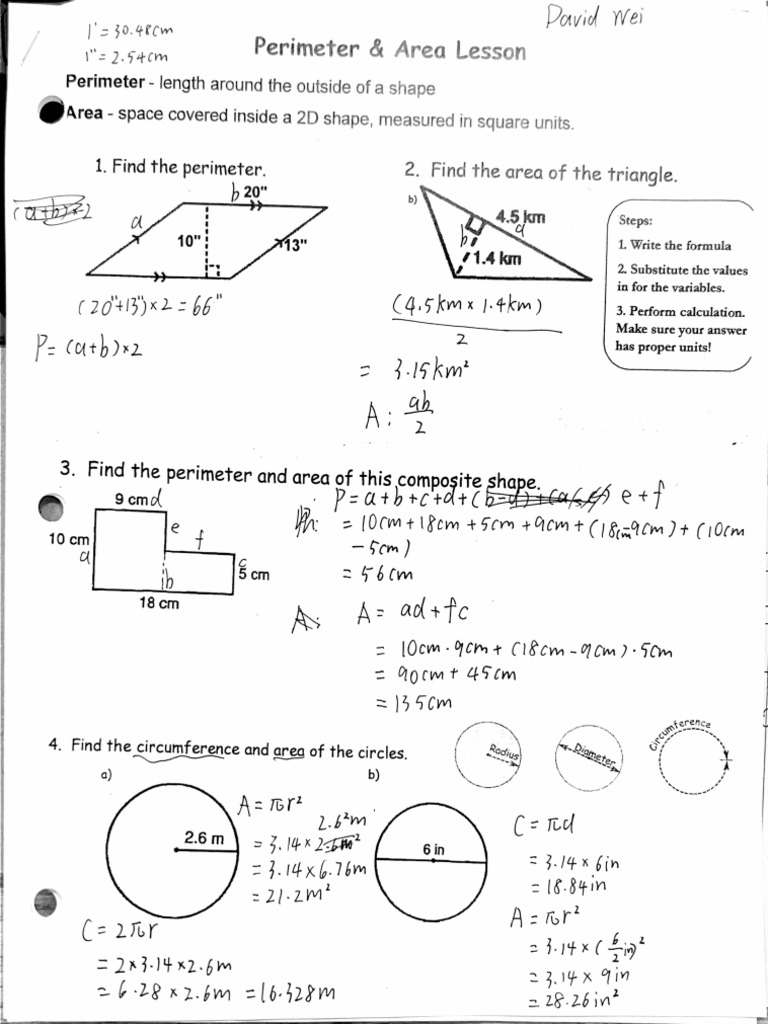 David Wei
1' = 30.48cm
1" = 2.54cm
Perimeter & Area Lesson
Perimeter - length around the outside of a shape
Area - space covered inside a 2D shape, measured in square units.
1. Find the perimeter.
(a+b)×2
b 20"
a
10"
13"
(20"+13")×2=66"
P=(a+b)×2
2. Find the area of the triangle.
b)
4.5 km
a
b
1.4 km
(4.5km×1.4km)
2
= 3.15km²
A: ab
2
Steps:
1. Write the formula
2. Substitute the values
in for the variables.
3. Perform calculation.
Make sure your answer
has proper units!
3. Find the perimeter and area of this composite shape.
9 cm d
e
f
10 cm
a
c
5 cm
b
18 cm
P=a+b+c+d+ e+f
= 10cm+18cm+5cm+9cm+(18cm-9cm)+(10cm
-5cm)
= 56cm
A: A= ad+fc
= 10cm·9cm+(18cm-9cm)·5cm
= 90cm+45cm
= 135cm
4. Find the circumference and area of the circles.
Radius
Diameter
Circumference
a)
2.6 m
A=πr²
2.6²m
= 3.14×2.6m²
= 3.14×6.76m
= 21.2m²
C=2πr
= 2×3.14×2.6m
= 6.28×2.6m =16.328m
b)
6 in
C=πd
= 3.14×6in
= 18.84in
A=πr²
= 3.14×(6/2 in)²
= 3.14×9in
= 28.26in²